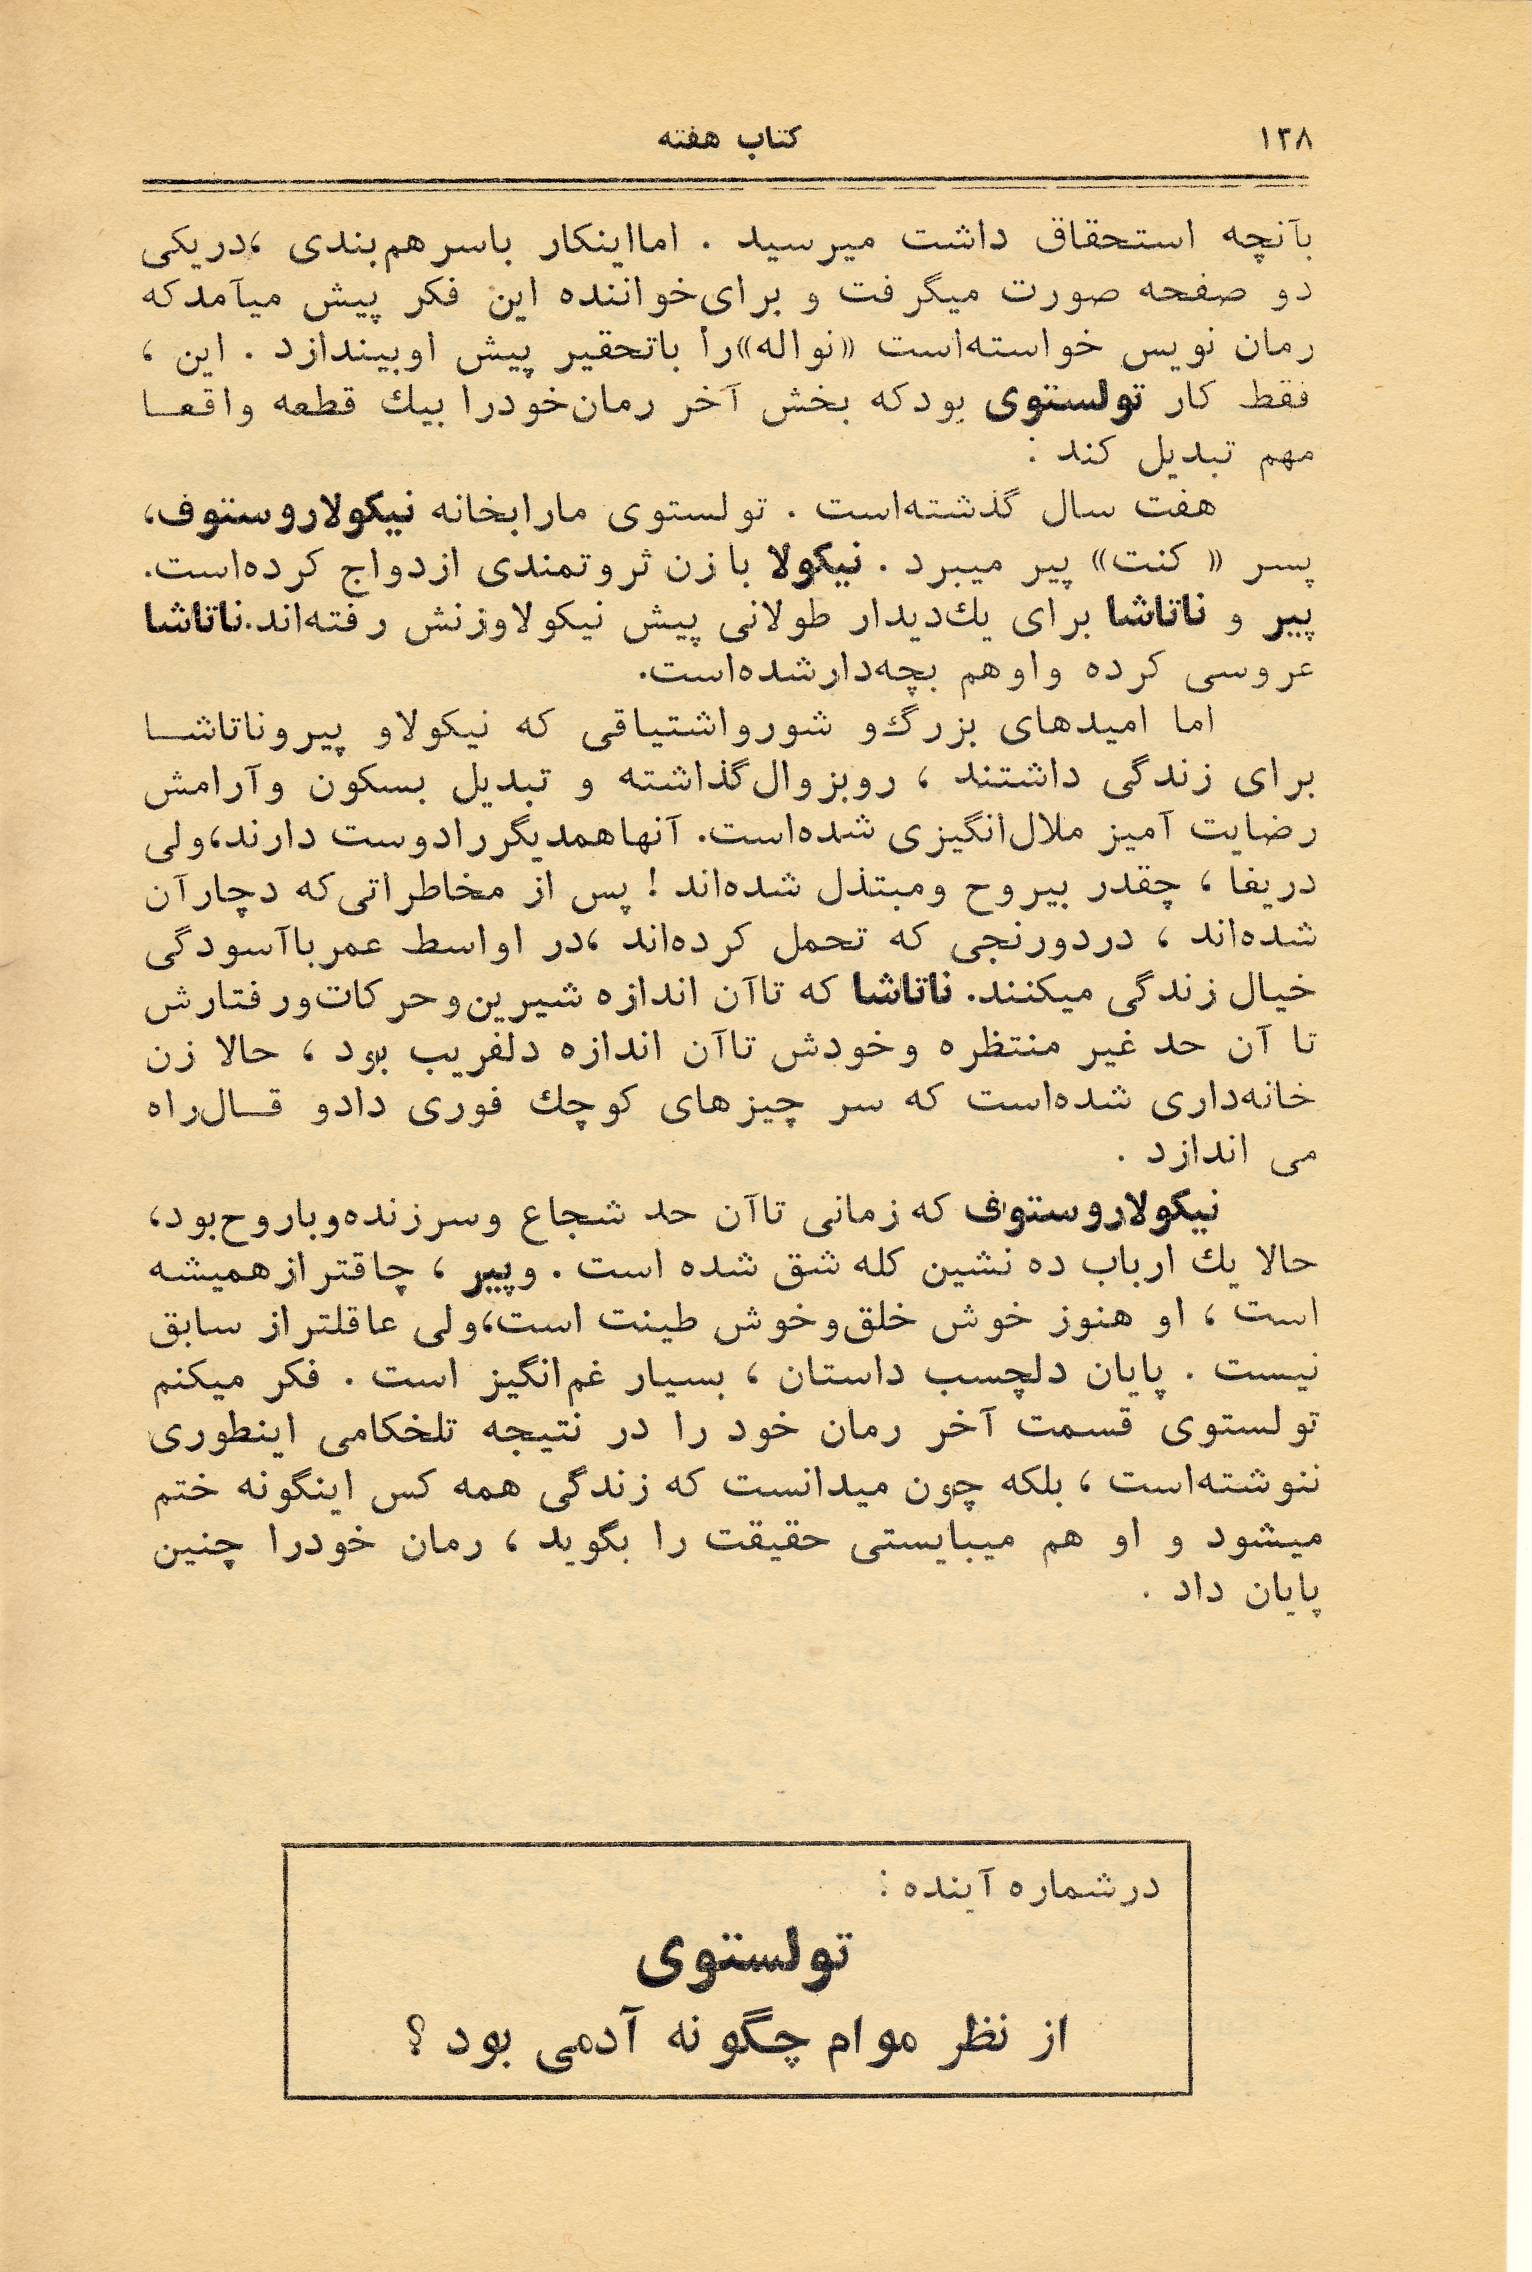 ۱۳۸
کتاب هفته
بآنچه استحقاق داشت میرسید . امااینکار باسرهم‌بندی ،دریکی
دو صفحه صورت میگرفت و برای‌خواننده این فکر پیش میآمدکه
رمان نویس خواسته‌است «نواله»را باتحقیر پیش اوبیندازد . این ،
فقط کار تولستوی بودکه بخش آخر رمان‌خودرا بیك قطعه واقعـا
مهم تبدیل کند :
هفت سال گذشته‌است . تولستوی مارابخانه نیکولاروستوف،
پسر « کنت» پیر میبرد . نیکولا بازن ثروتمندی ازدواج کرده‌است.
پیر و ناتاشا برای یك‌دیدار طولانی پیش نیکولاوزنش رفته‌اند.ناتاشا
عروسی کرده واوهم بچه‌دارشده‌است.
اما امیدهای بزرگ‌و شورواشتیاقی که نیکولاو پیروناتاشـا
برای زندگی داشتند ، روبزوال‌گذاشته و تبدیل بسکون وآرامش
رضایت آمیز ملال‌انگیزی شده‌است. آنهاهمدیگررادوست دارند،ولی
دریغا ، چقدر بیروح ومبتذل شده‌اند ! پس از مخاطراتی‌که دچارآن
شده‌اند ، دردورنجی که تحمل کرده‌اند ،در اواسط عمرباآسودگی
خیال زندگی میکنند. ناتاشا که تاآن اندازه شیرین‌وحرکات‌ورفتارش
تا آن حد غیر منتظره وخودش تاآن اندازه دلفریب بود ، حالا زن
خانه‌داری شده‌است که سر چیزهای کوچك فوری دادو قـال‌راه
می اندازد .
نیکولاروستوف که زمانی تاآن حد شجاع وسرزنده‌وباروح‌بود،
حالا یك ارباب ده نشین کله شق شده است . وپیر ، چاقترازهمیشه
است ، او هنوز خوش خلق‌وخوش طینت است،ولی عاقلتراز سابق
نیست . پایان دلچسب داستان ، بسیار غم‌انگیز است . فکر میکنم
تولستوی قسمت آخر رمان خود را در نتیجه تلخکامی اینطوری
ننوشته‌است ، بلکه چون میدانست که زندگی همه کس اینگونه ختم
میشود و او هم میبایستی حقیقت را بگوید ، رمان خودرا چنین
پایان داد .
درشماره آینده :
تولستوی
از نظر موام چگونه آدمی بود ؟